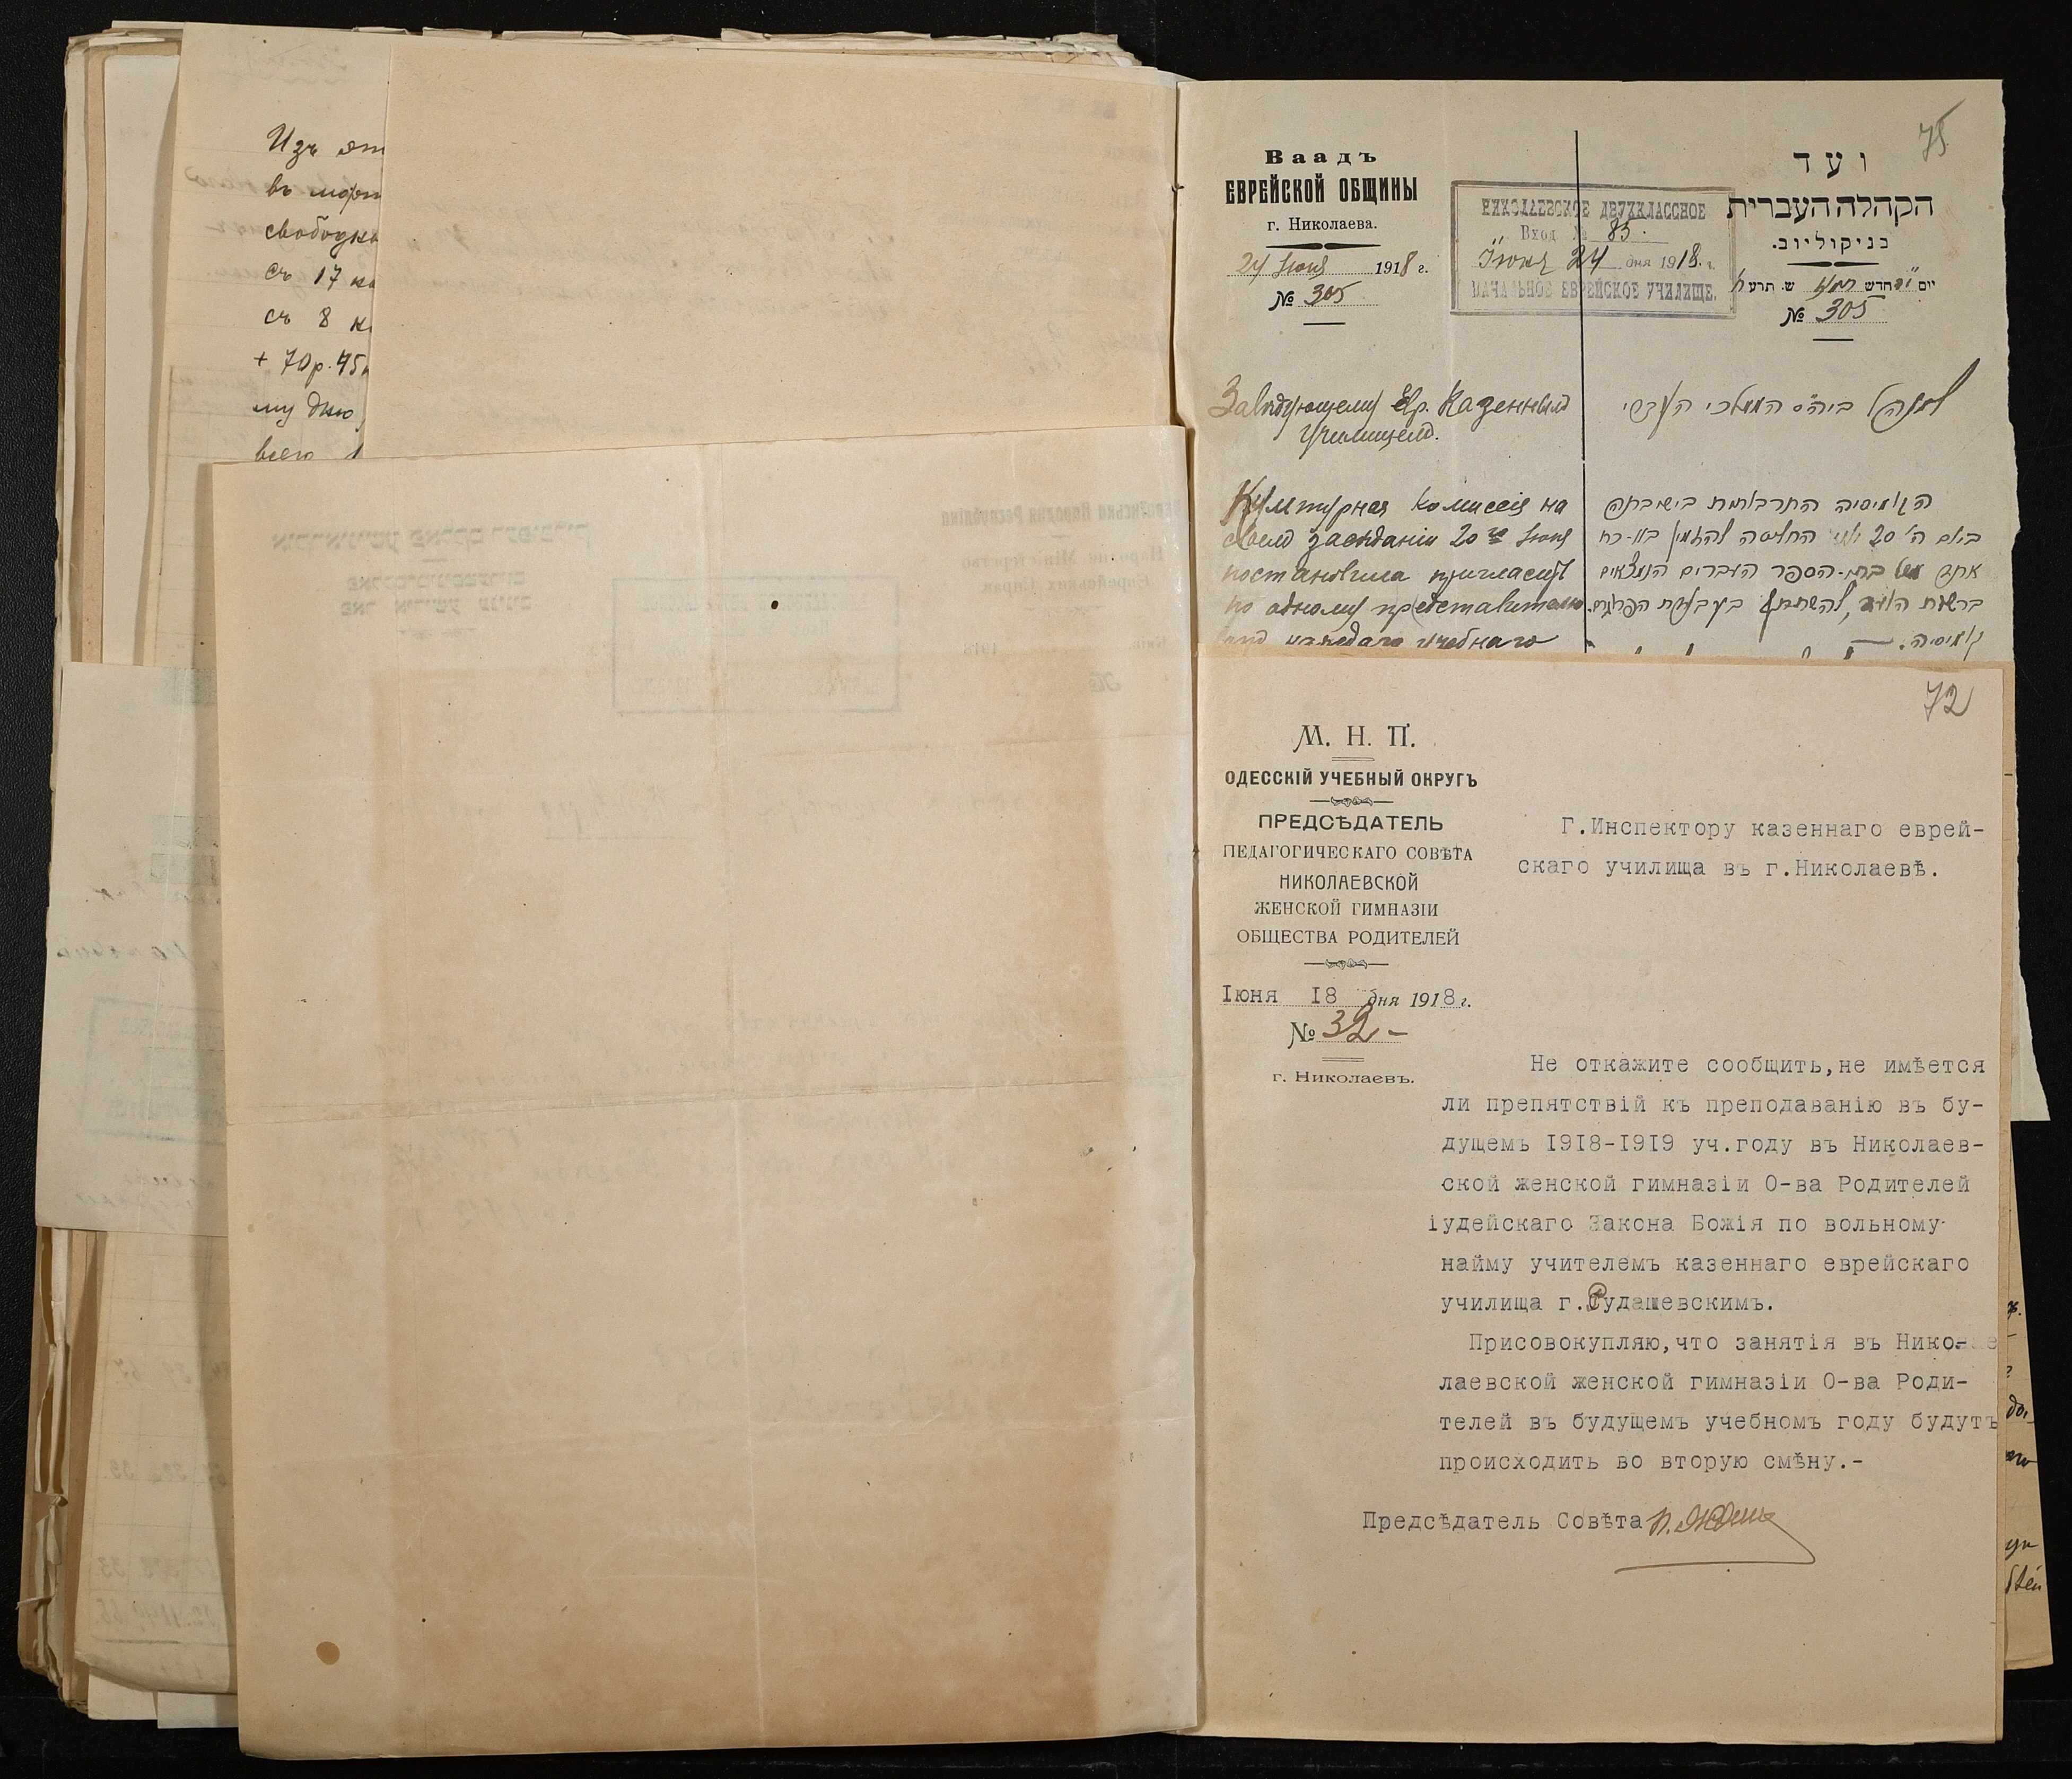 Изъ
въ
свободн
съ 17 ко
съ 8 к
+ 70р. 45к
му дню
всего
75
Ваадъ
ЕВРЕЙСКОЙ ОБЩИНЫ
г. Николаева.
24 Іюня 1918 г.
№ 305
НИКОЛАЕВСКОЕ ДВУХКЛАССНОЕ
Вход № 85.
Іюня 24 дня 1918 г.
НАЧАЛЬНОЕ ЕВРЕЙСКОЕ УЧИЛИЩЕ.
ועד
הקהלה העברית
בניקוליוב.
יום י"ד חדש תמוז ש. תרע"ח
№ 305
Завѣдующему Евр. Казеннымъ
Училищемъ.
למנהל ביה"ס הממלכתי העברי
Культурная Комиссія на
своемъ засѣданіи 20го Іюня
постановила пригласить
по одному представителю
отъ каждаго учебнаго
הקומיסיה התרבותית בישיבתה
ביום ה' 20 יוני החליטה להזמין בא-כח
אחד מכל בתי-הספר העברים הנמצאים
ברשות הועד, להשתתף בעבודת
קומיסיה.
72
М. Н. П.
ОДЕССКІЙ УЧЕБНЫЙ ОКРУГЪ
ПРЕДСѢДАТЕЛЬ
ПЕДАГОГИЧЕСКАГО СОВѢТА
НИКОЛАЕВСКОЙ
ЖЕНСКОЙ ГИМНАЗІИ
ОБЩЕСТВА РОДИТЕЛЕЙ
Iюня I8 дня 1918 г.
№ 32-
г. Николаевъ.
Г.Инспектору казеннаго еврей-
скаго училища въ г.Николаевѣ.
Не откажите сообщить,не имѣется
ли препятствій къ преподаванію въ бу-
дущемъ I9I8-I9I9 уч.году въ Николаев-
ской женской гимназіи О-ва Родителей
іудейскаго Закона Божія по вольному
найму учителемъ казеннаго еврейскаго
училища г.Рудашевскимъ.
Присовокупляю,что занятія въ Нико-
лаевской женской гимназіи О-ва Роди-
телей въ будущемъ учебномъ году будутъ
происходить во вторую смѣну.-
Предсѣдатель Совѣта